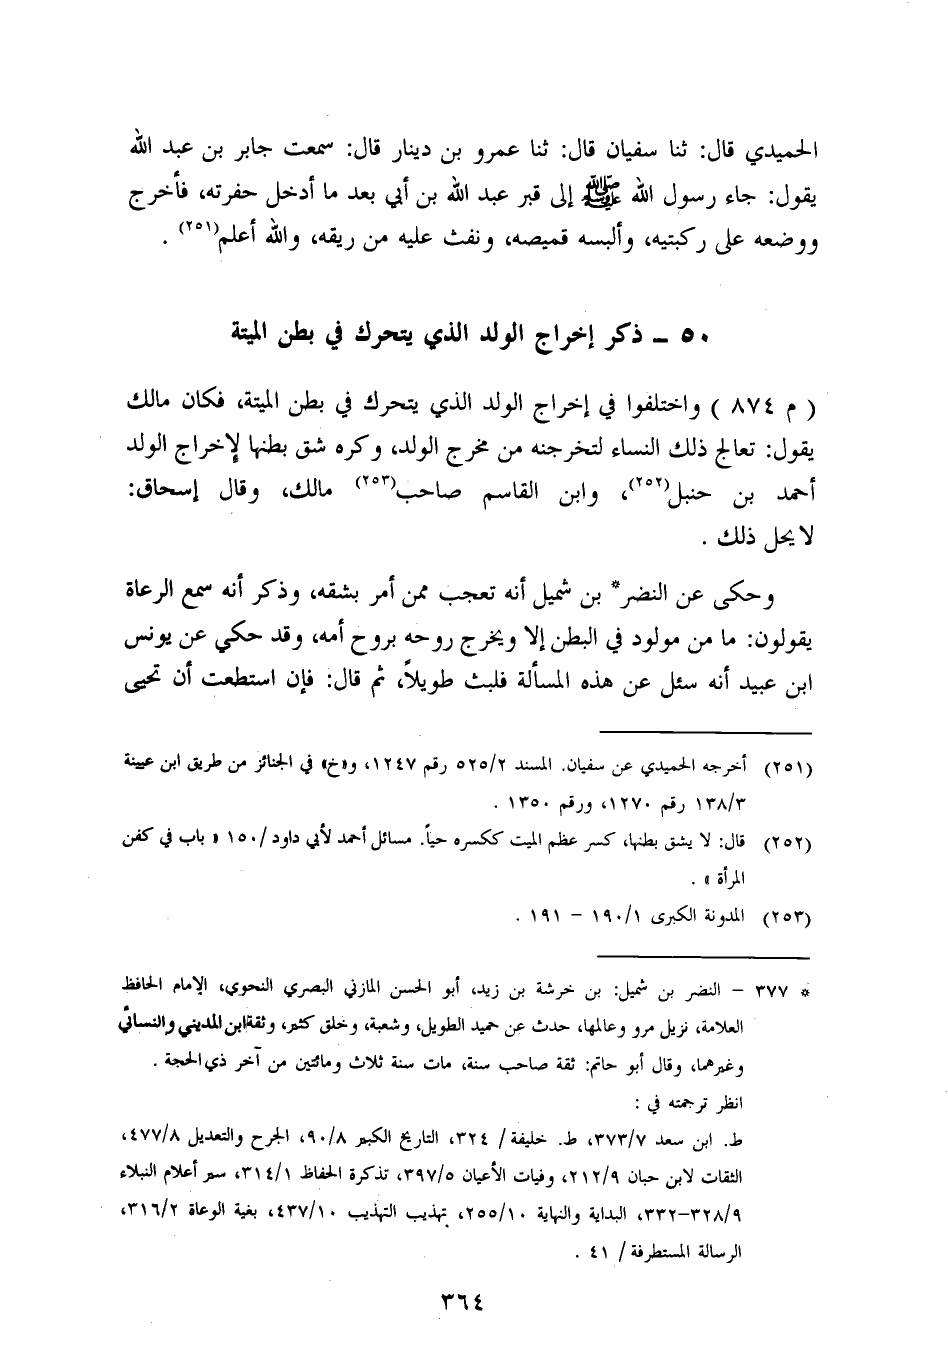 الحميدي قال: ثنا سفيان قال: ثنا عمرو بن دينار قال: سمعت جابر بن عبد الله
يقول: جاء رسول الله ﷺ إلى قبر عبد الله بن أبي بعد ما أدخل حفرته، فأخرج
ووضعه على ركبتيه، وألبسه قميصه، ونفث عليه من ريقه، والله أعلم(٢٥١) .
٥٠ ـ ذكر إخراج الولد الذي يتحرك في بطن الميتة
( م ٨٧٤ ) واختلفوا في إخراج الولد الذي يتحرك في بطن الميتة، فكان مالك
يقول: تعالج ذلك النساء لتخرجنه من مخرج الولد، وكره شق بطنها لإخراج الولد
أحمد بن حنبل(٢٥٢)، وابن القاسم صاحب(٢٥٣) مالك، وقال إسحاق:
لا يحل ذلك .
وحكى عن النضر* بن شميل أنه تعجب ممن أمر بشقه، وذكر أنه سمع الرعاة
يقولون: ما من مولود في البطن إلا ويخرج روحه بروح أمه، وقد حكي عن يونس
ابن عبيد أنه سئل عن هذه المسألة فلبث طويلاً، ثم قال: فإن استطعت أن تحيى
(٢٥١) أخرجه الحميدي عن سفيان. المسند ٥٢٥/٢ رقم ١٢٤٧، و«خ» في الجنائز من طريق ابن عيينة
١٣٨/٣ رقم ١٢٧٠، ورقم ١٣٥٠ .
(٢٥٢) قال: لا يشق بطنها، كسر عظم الميت ككسره حياً. مسائل أحمد لأبي داود /١٥٠ « باب في كفن
المرأة » .
(٢٥٣) المدونة الكبرى ١٩٠/١ – ١٩١ .
* ٣٧٧ – النضر بن شميل: بن خرشة بن زيد، أبو الحسن المازني البصري النحوي، الإمام الحافظ
العلامة، نزيل مرو وعالمها، حدث عن حميد الطويل، وشعبة، وخلق كثير، وثقة ابن المديني والنسائي
وغيرهما، وقال أبو حاتم: ثقة صاحب سنة، مات سنة ثلاث ومائتين من آخر ذي الحجة .
انظر ترجمته في :
ط. ابن سعد ٣٧٣/٧، ط. خليفة/ ٣٢٤، التاريخ الكبير ٩٠/٨، الجرح والتعديل ٤٧٧/٨،
الثقات لابن حبان ٢١٢/٩، وفيات الأعيان ٣٩٧/٥، تذكرة الحفاظ ٣١٤/١، سير أعلام النبلاء
٣٢٨/٩–٣٣٢، البداية والنهاية ٢٥٥/١٠، تهذيب التهذيب ٤٣٧/١٠، بغية الوعاة ٣١٦/٢،
الرسالة المستطرفة/ ٤١ .
٣٦٤